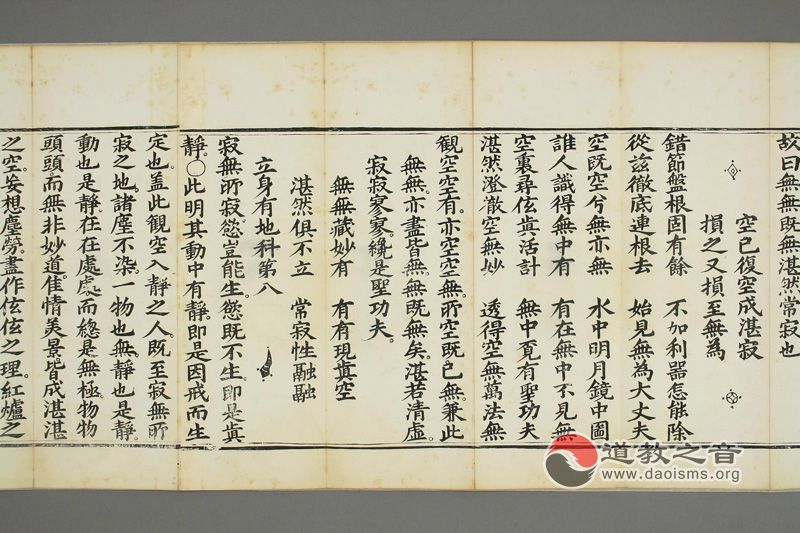 故曰無無既無湛然常寂也
空已復空成湛寂
損之又損至無為
錯節盤根固有餘　不加利器怎能除
從茲徹底連根去　始見無為大丈夫
空既空兮無亦無　水中明月鏡中圖
誰人識得無中有　有在無中不見無
空裏尋伭真活計　無中覓有聖功夫
湛然澄澈空無妙　透得空無萬法無
觀空空有。亦空空無。所空既已無。兼此
無無。亦盡皆無。無既無矣。湛若清虛。
寂寂寥寥。纔是聖功夫。
無無藏妙有　有有現真空
湛然俱不立　常寂性融融
立身有地科第八
寂無所寂。慾豈能生。慾既不生。即是真
靜。〇此明其動中有靜。即是因戒而生
定也。蓋此觀空入靜之人。既至寂無所
寂之地。諸塵不染。一物也無。靜也是靜。
動也是靜。在在處處。而總是無極。物物
頭頭。而無非妙道。佳情美景。皆成湛湛
之空。妄想塵勞。盡作伭伭之理。紅爐之
道教之音
www.daoisms.org